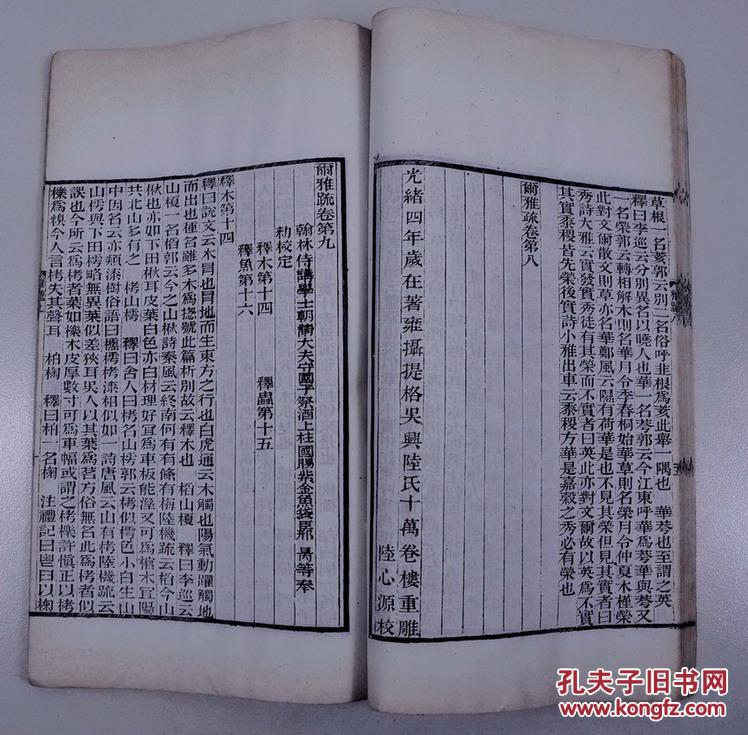 草根一名荄郭云別二名俗呼韭根爲荄此舉一隅也　華荂也至謂之英
釋曰李巡云分別異名以曉人也華一名荂郭云今江東呼華爲荂華與荂又
一名榮郭云轉相解木則名華月令季春桐始華草則名榮月令仲夏木槿榮
此對文爾散文則草亦名華鄭風云隰有荷華是也不見其榮但見其實者曰
秀詩大雅云實發實秀徒有其榮而不實者曰英此亦對文爾故以英爲不實
其實黍稷皆先榮後實詩小雅出車云黍稷方華是嘉穀之秀必有榮也
爾雅疏卷第八
光緒四年歲在著雍攝提格吳興陸氏十萬卷樓重雕
陸心源校
爾雅疏卷第九
翰林侍講學士朝請大夫守國子祭酒上柱國賜紫金魚袋臣邢　昺等奉
勑校定
釋木第十四　釋蟲第十五
釋魚第十六
釋木第十四
釋曰說文云木冒也冒地而生東方之行也白虎通云木觸也陽氣動躍觸地
而出也種名雖多木爲摠號此篇析別故云釋木也　槄山榎　釋曰李巡云
山榎一名槄郭云今之山楸詩秦風云終南何有有條有梅陸機疏云槄今山
楸也亦如下田楸耳皮葉白色亦白材理好宜爲車板能溼又可爲棺木宜陽
共北山多有之　栲山樗　釋曰舍人曰栲名山樗郭云栲似樗色小白生山
中因名云亦類漆樹俗語曰櫄樗栲漆相似如一詩唐風云山有栲陸機疏云
山樗與下田樗略無異葉似差狹耳吳人以其葉爲茗方俗無名此爲栲者似
誤也今所云爲栲者葉如櫟木皮厚數寸可爲車輻或謂之栲櫟許慎正以栲
櫟爲糗今人言栲失其聲耳　柏椈　釋曰柏一名椈　注禮記曰鬯臼以椈
孔夫子旧书网
www.kongfz.com